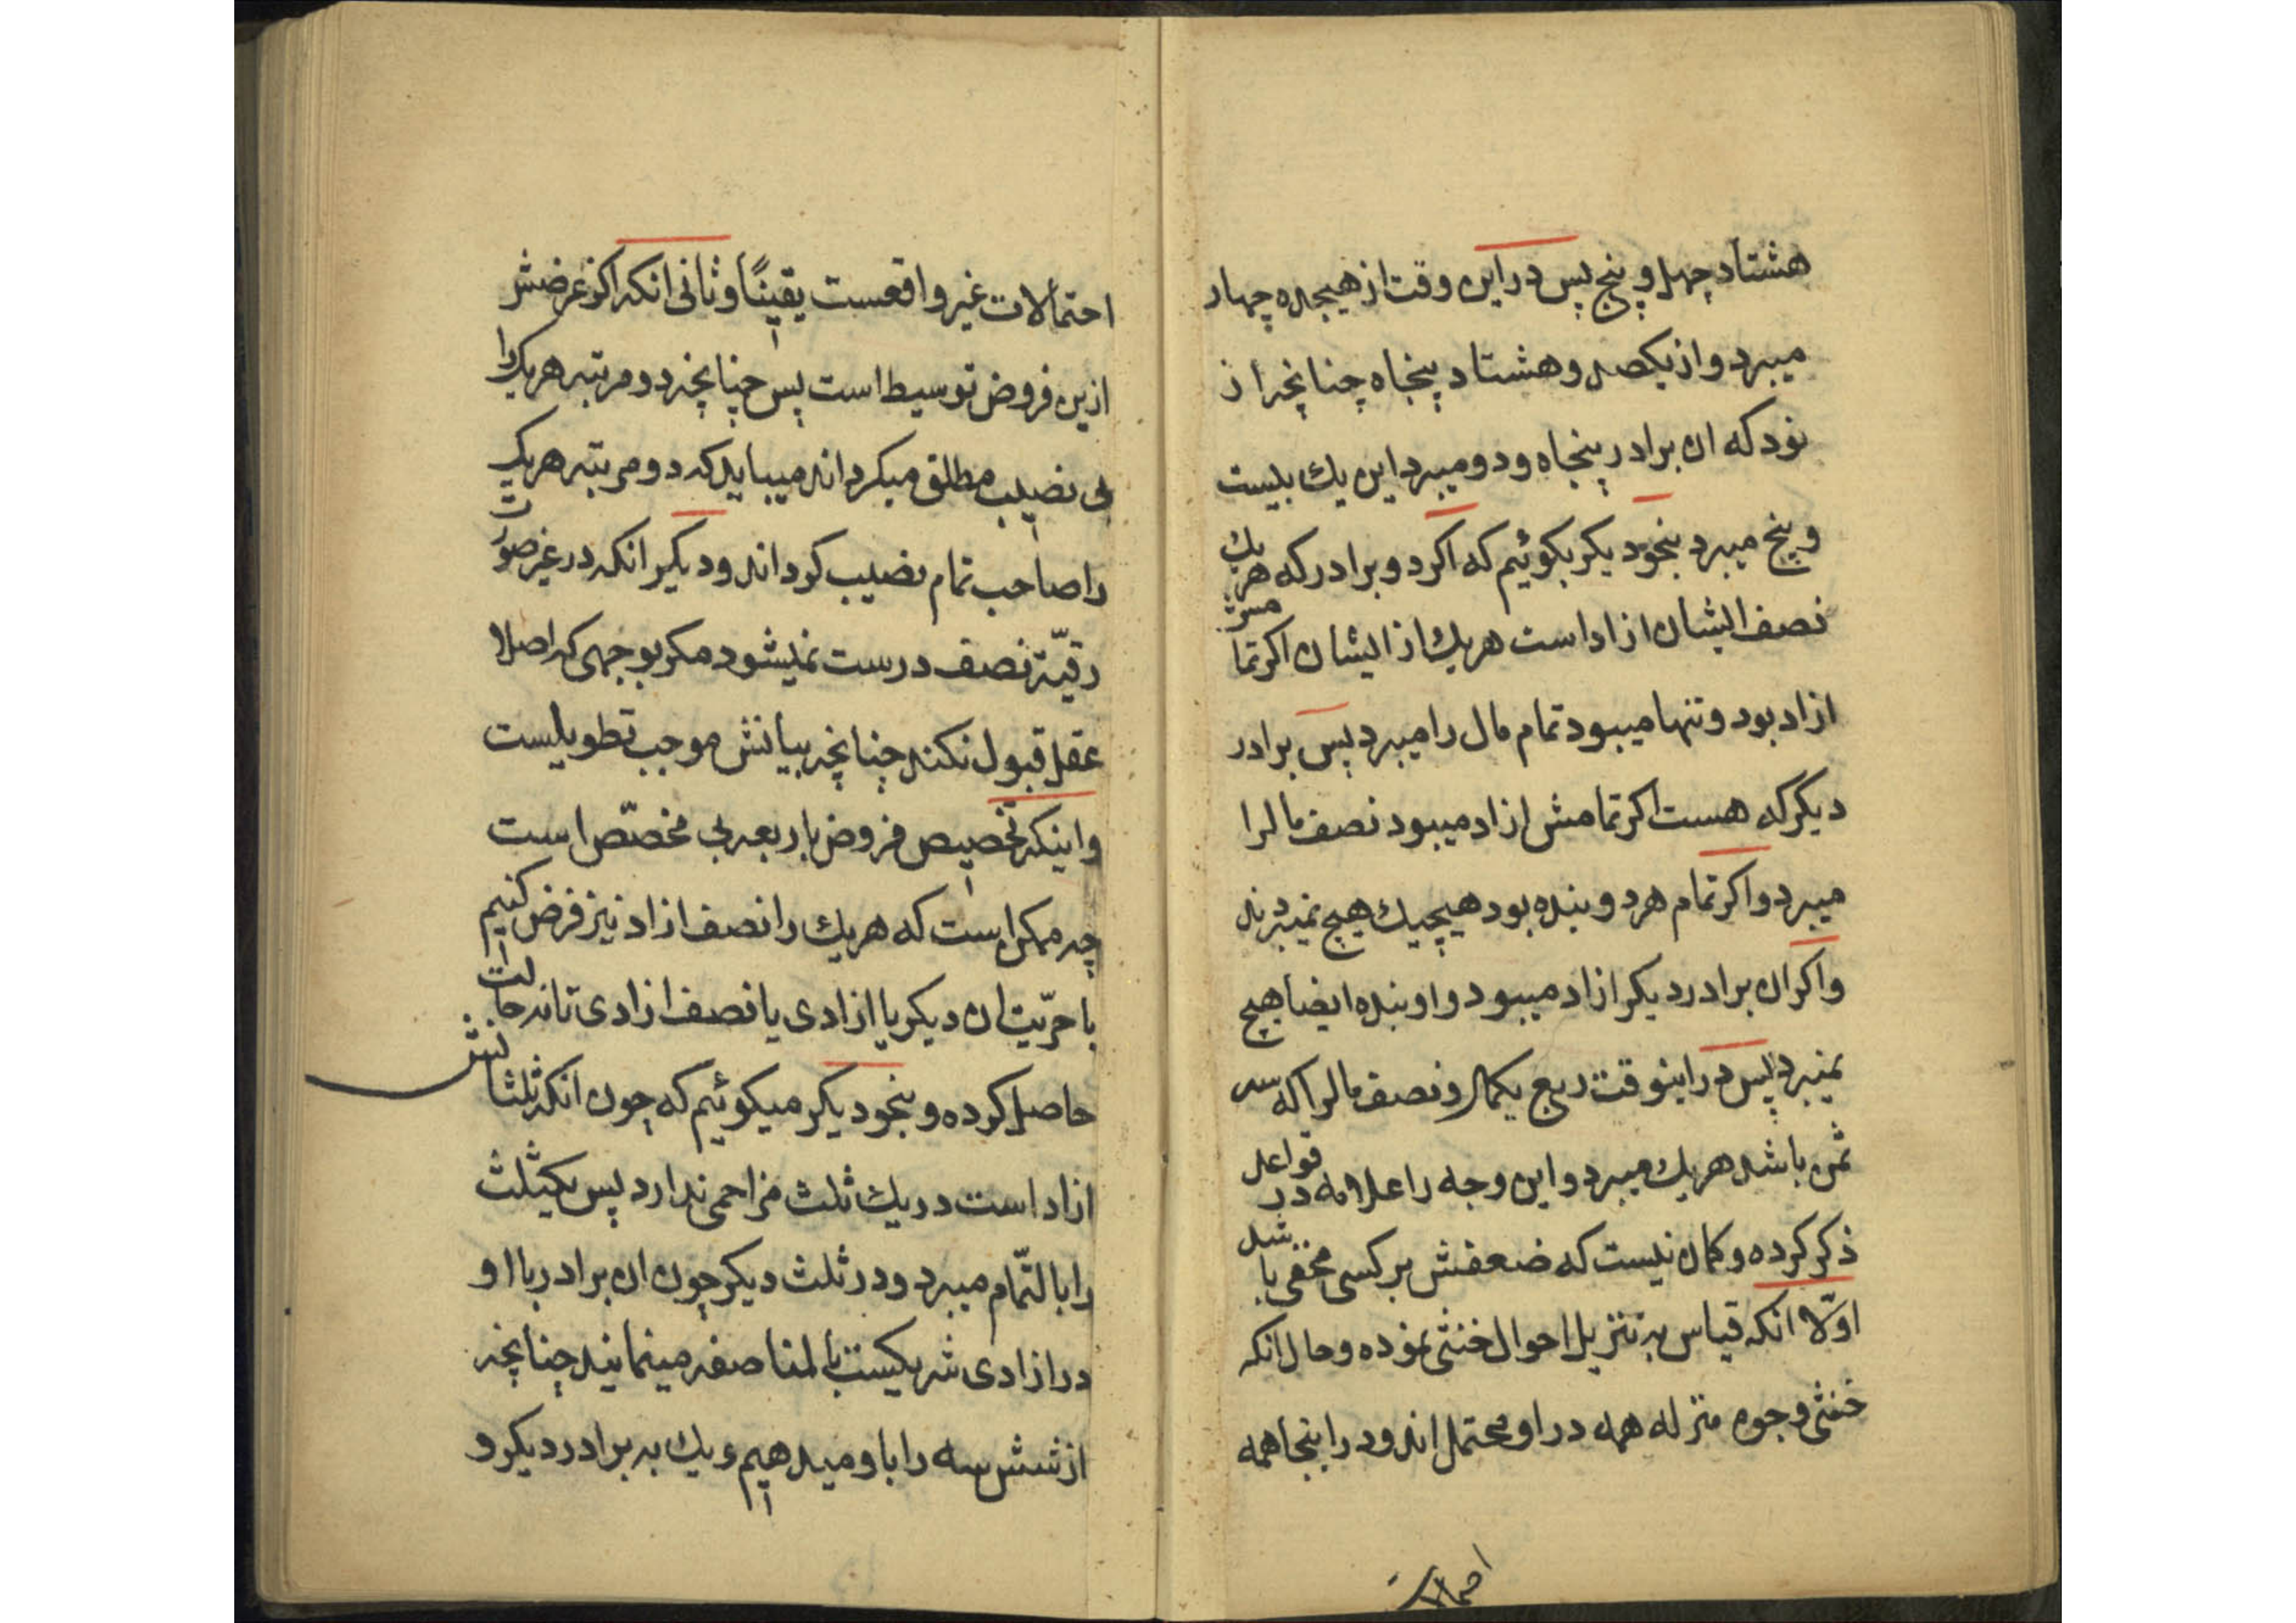 هشتاد چهل و پنج پس در این وقت از هیجده چهار
میبرد و از یکصد و هشتاد پنجاه چنانچه از
نود که ان برادر پنجاه و دو میبرد این یك بیست
و پنج میبرد بنحو دیکر بکوئیم که اکر دو برادر که هر یك
نصف ایشان ازاد است هر یك از ایشان اکر تمامش
ازاد بود و تنها میبود تمام مال را میبرد پس برادر
دیکر که هست اکر تمامش ازاد میبود نصف مالرا
میبرد و اکر تمام هر دو بنده بود هیچیك هیچ نمیبردند
و اکر ان برادر دیکر ازاد میبود و او بنده ایضا هیچ
نمیبرد پس در اینوقت ربع یکمال و نصف مالرا که سه
ثمن باشد هر یك میبرد و این وجه را علامه در قواعد
ذکر کرده و کمان نیست که ضعفش بر کسی مخفی باشد
اوّلا انکه قیاس به تنزیل احوال خنثی نموده و حال انکه
خنثی وجوه منزله همه در او محتمل اند و در اینجا همه
احتمالات
احتمالات غیر واقعست یقینًا و ثانی انکه اکر غرضش
ازین فروض توسیط است پس چنانچه دو مرتبه هر یك را
بی نصیب مطلق میکرداند میباید که دو مرتبه هر یك
را صاحب تمام نصیب کرداند و دیکر انکه در غیر صورت
رقیّة نصف درست نمیشود مکر بوجهی که اصلا
عقل قبول نکند چنانچه بیانش موجب تطویلست
و اینکه تخصیص فروض باربعه بی مخصّص است
چه ممکن است که هر یك را نصف ازاد نیز فرض کنیم
با حرّیت ان دیکر یا ازادی یا نصف ازادی تا نه حالت
حاصل کرده و بنحو دیکر میکوئیم که چون انکه ثلثانش
ازاد است در یك ثلث مزاحمی ندارد پس یکثلث
را بالتّمام میبرد و در ثلث دیکر چون ان برادر با او
در ازادی شریکیست بالمناصفه مینمایند چنانچه
از شش سه را باو میدهیم و یك به برادر دیکر و